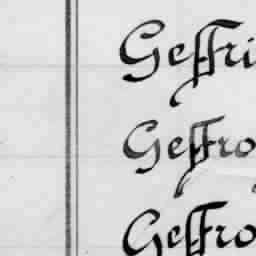 Geffri
Geffro
Geffro